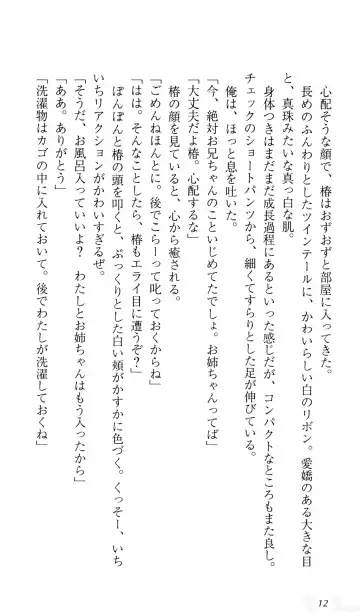 心配そうな顔で、椿はおずおずと部屋に入ってきた。
長めのふんわりとしたツインテールに、かわいらしい白のリボン。愛嬌のある大きな目
と、真珠みたいな真っ白な肌。
身体つきはまだまだ成長過程にあるといった感じだが、コンパクトなところもまた良し。
チェックのショートパンツから、細くてすらりとした足が伸びている。
俺は、ほっと息を吐いた。
「今、絶対お兄ちゃんのこといじめてたでしょ。お姉ちゃんってば」
「大丈夫だよ椿。心配するな」
椿の顔を見ていると、心から癒される。
「ごめんねほんとに。後でこらーって叱っておくからね」
「はは。そんなことしたら、椿もエライ目に遭うぞ？」
ぽんぽんと椿の頭を叩くと、ぷっくりとした白い頬がかすかに色づく。くっそー、いち
いちリアクションがかわいすぎるぜ。
「そうだ、お風呂入っていいよ？　わたしとお姉ちゃんはもう入ったから」
「ああ。ありがとう」
「洗濯物はカゴの中に入れておいて。後でわたしが洗濯しておくね」
12